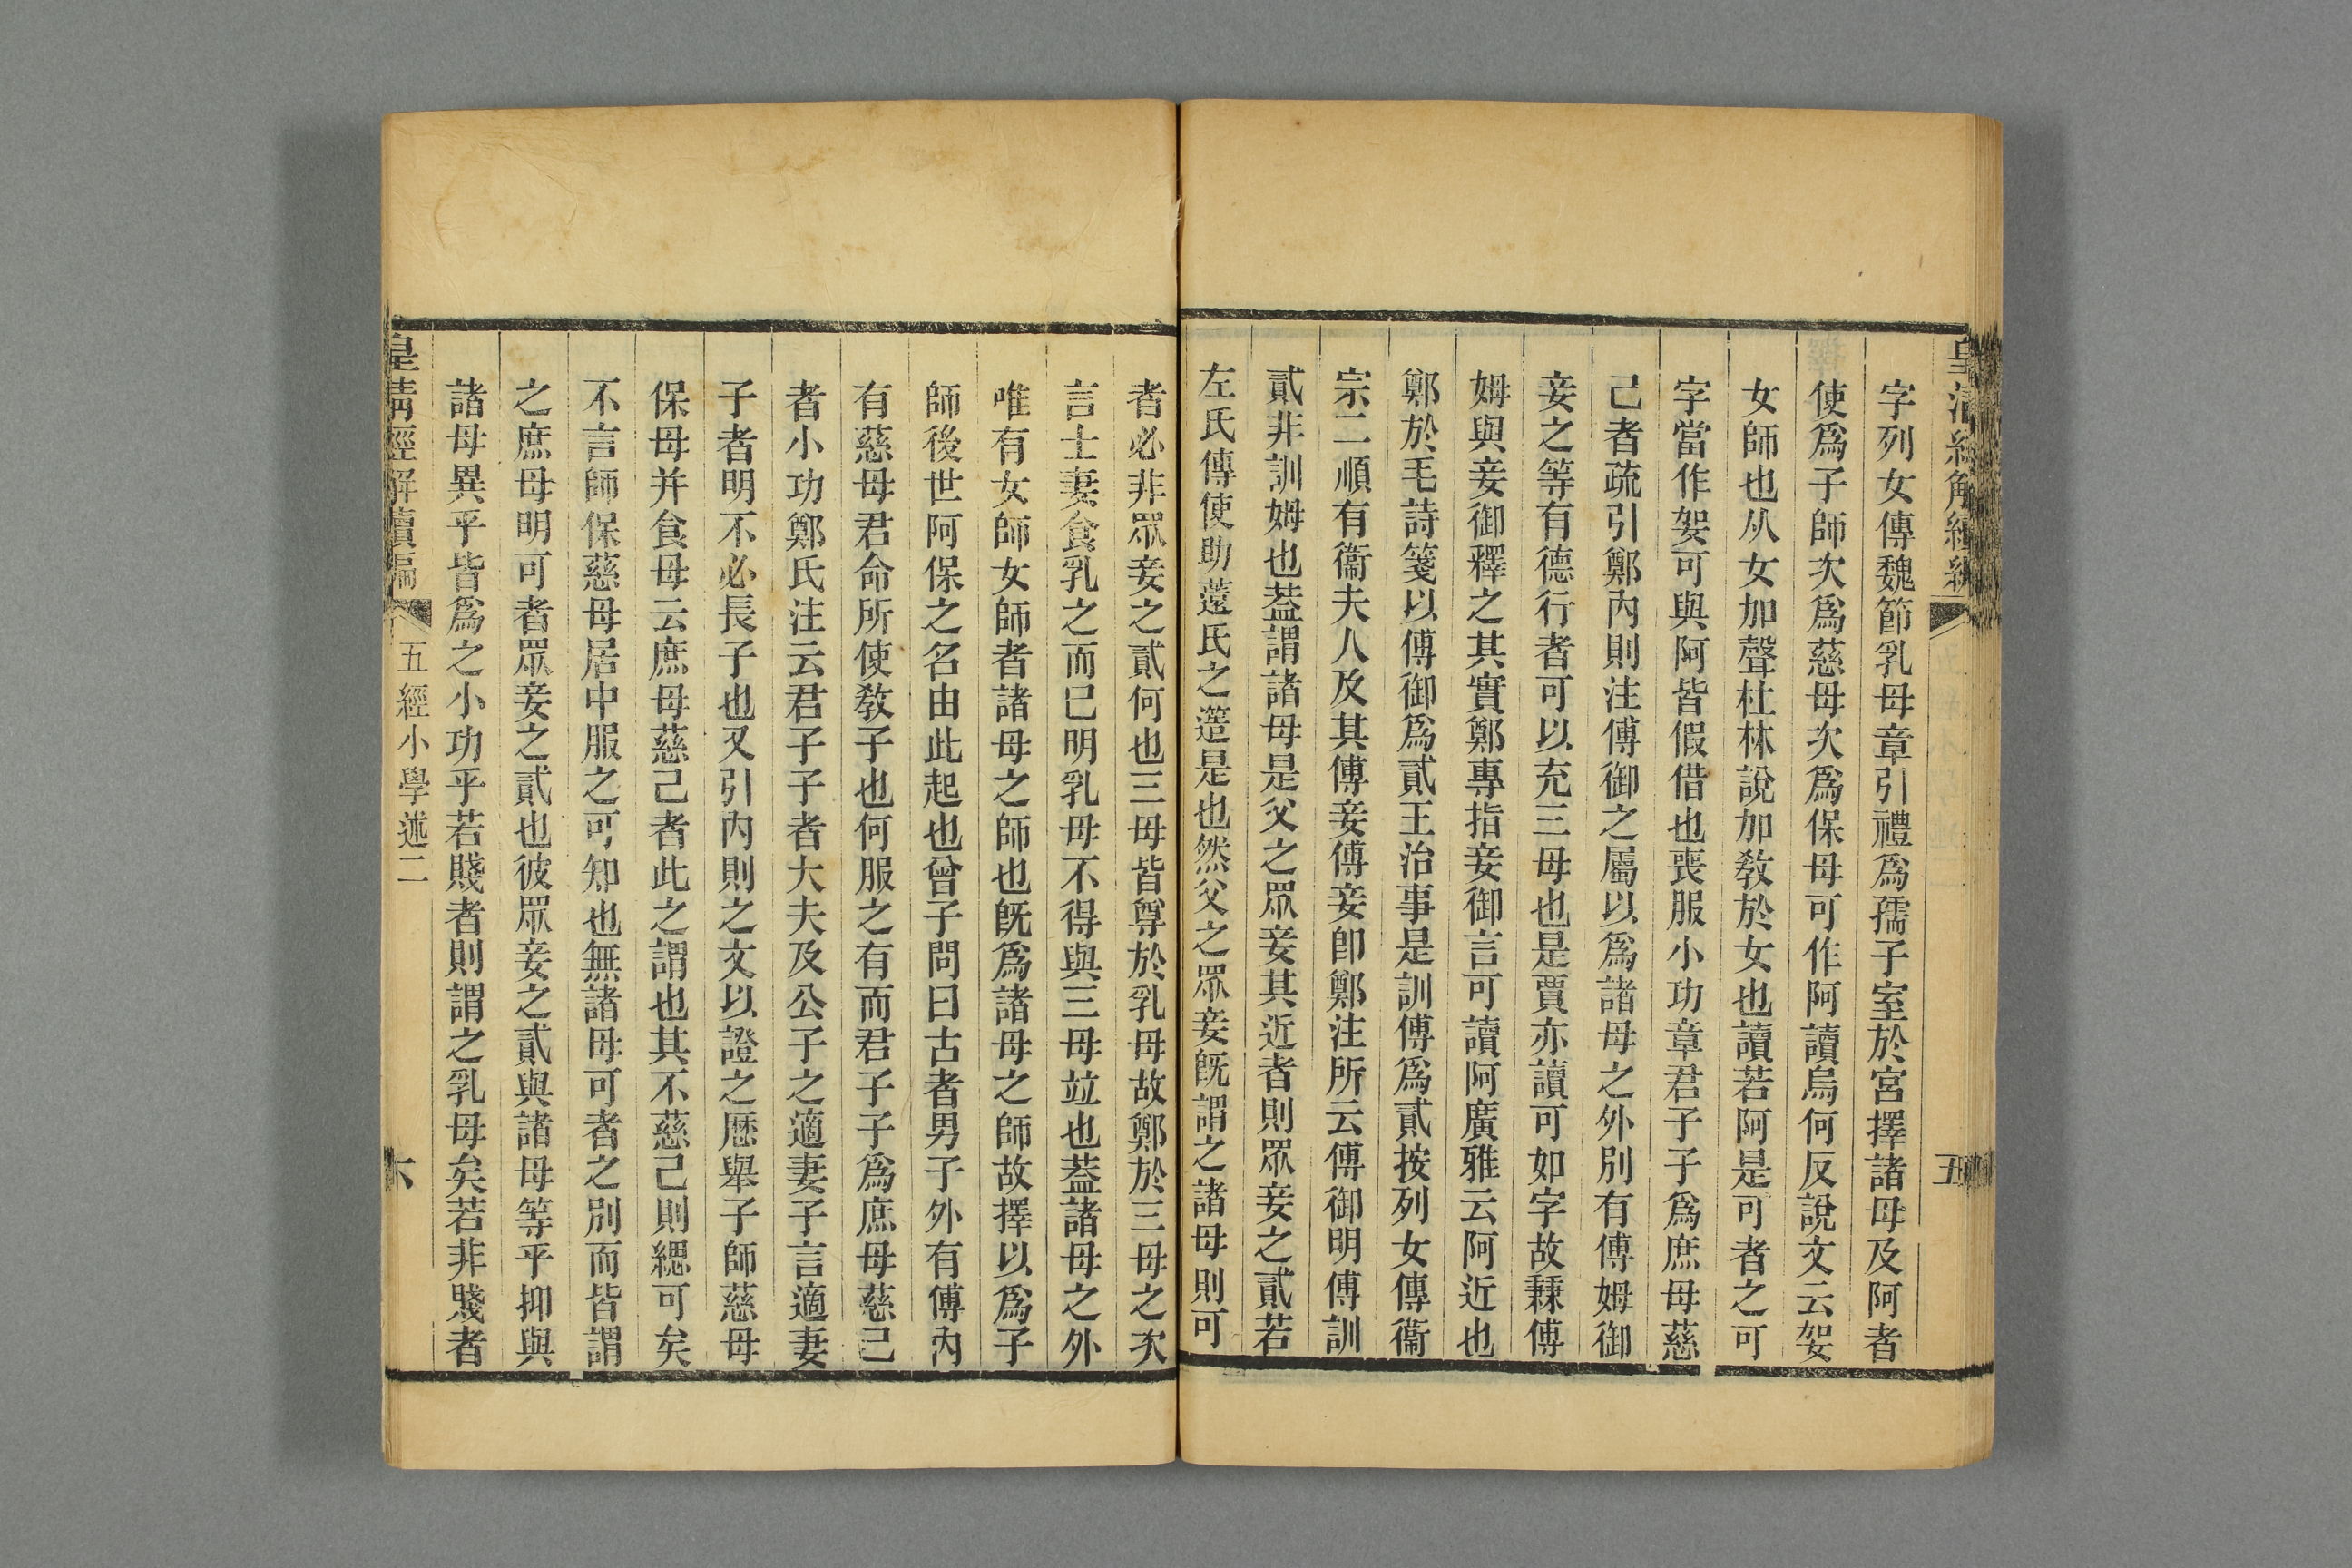 皇清經解續編
五
字列女傳魏節乳母章引禮爲孺子室於宮擇諸母及阿者
使爲子師次爲慈母次爲保母可作阿讀烏何反說文云妿
女師也从女加聲杜林說加敎於女也讀若阿是可者之可
字當作妿可與阿皆假借也喪服小功章君子子爲庶母慈
己者疏引鄭內則注傅御之屬以爲諸母之外別有傅姆御
妾之等有德行者可以充三母也是賈亦讀可如字故兼傅
姆與妾御釋之其實鄭專指妾御言可讀阿廣雅云阿近也
鄭於毛詩箋以傅御爲貳王治事是訓傅爲貳按列女傳衞
宗二順有衞夫人及其傅妾傅妾卽鄭注所云傅御明傅訓
貳非訓姆也葢謂諸母是父之眾妾其近者則眾妾之貳若
左氏傳使助薳氏之簉是也然父之眾妾旣謂之諸母則可
者必非眾妾之貳何也三母皆尊於乳母故鄭於三母之次
言士妻食乳之而已明乳母不得與三母竝也葢諸母之外
唯有女師女師者諸母之師也旣爲諸母之師故擇以爲子
師後世阿保之名由此起也曾子問曰古者男子外有傅內
有慈母君命所使敎子也何服之有而君子子爲庶母慈己
者小功鄭氏注云君子子者大夫及公子之適妻子言適妻
子者明不必長子也又引內則之文以證之歷舉子師慈母
保母并食母云庶母慈己者此之謂也其不慈己則緦可矣
不言師保慈母居中服之可知也無諸母可者之別而皆謂
之庶母明可者眾妾之貳也彼眾妾之貳與諸母等乎抑與
諸母異乎皆爲之小功乎若賤者則謂之乳母矣若非賤者
皇淸經解續編
五經小學述二
六